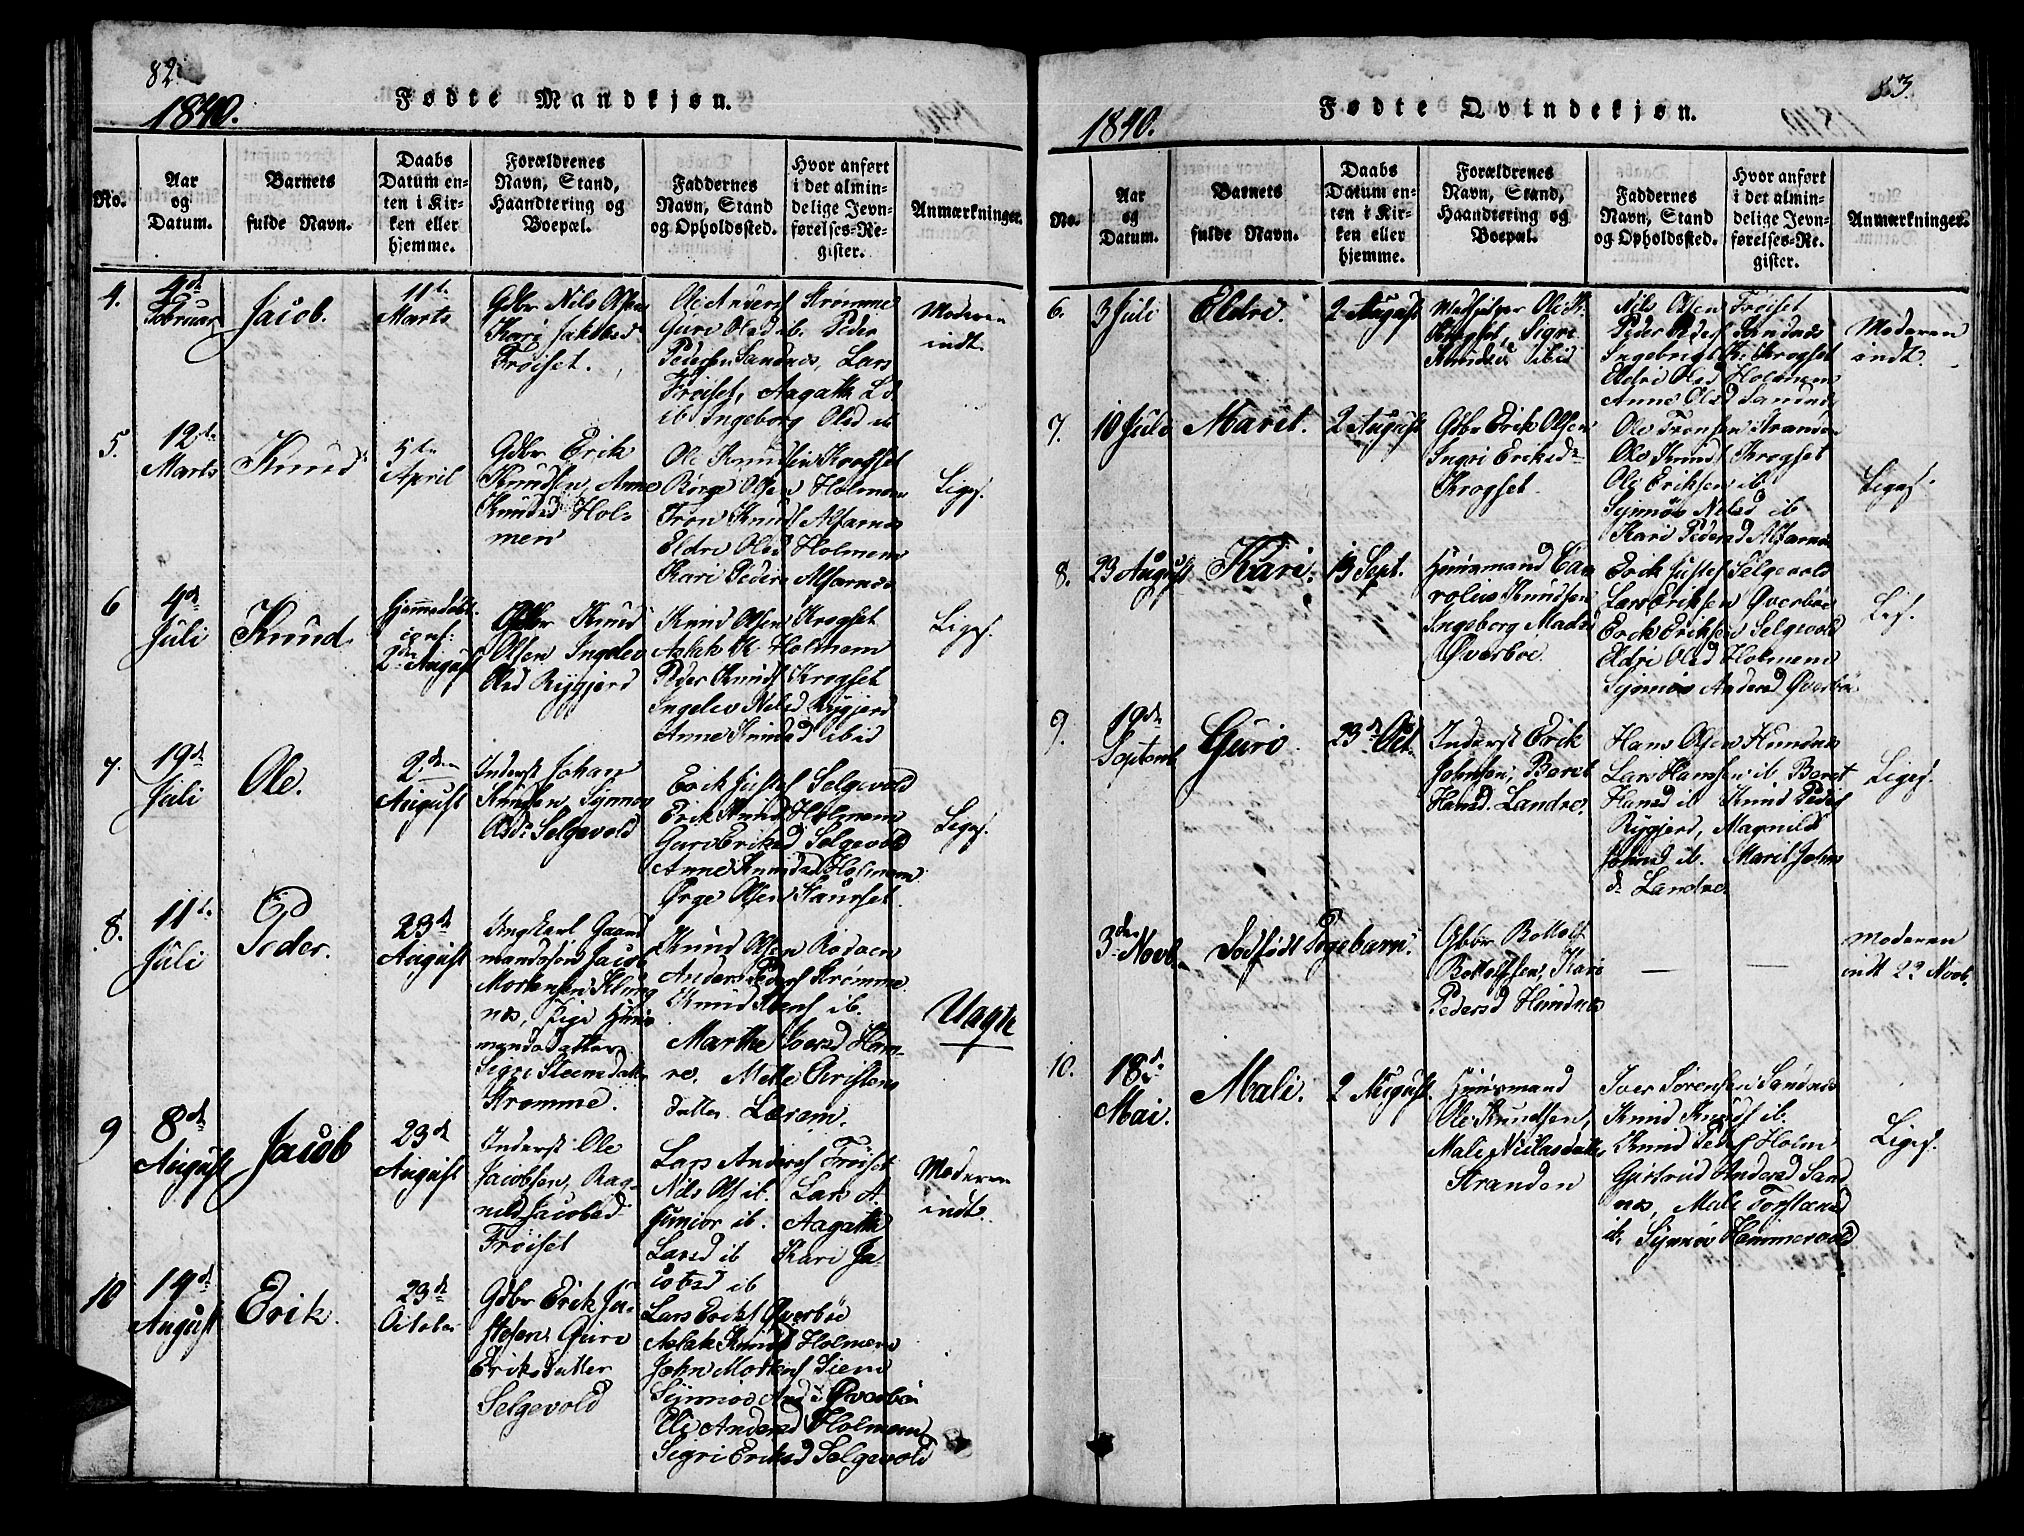 82
1840.
Fødte Mandkjøn.
No.
Aar
og
Datum.
Barnets
fulde Navn.
Daabs
Datum en-
ten i Kir-
ken eller
hjemme.
Forældrenes
Navn, Stand,
Haandtering og
Boepæl.
Faddernes
Navn, Stand
og Opholdssted.
Hvor anført
i det almin-
delige Jevn-
førelses-Re-
gister.
Anmærkninger.
4.
4de
Februar
Jacob.
11te
Marts
Gdbr Nils Olsen
Kari Jakobsd
Frøiset.
Ole Anders Strømme
Guri Olsd ib. Peder
Pedersen Sandnes, Lars
Frøiset, Aagathe L.d.
ib Ingeborg Olsd ib
Moderen
indt.
5.
12te
Marts
Knud
5te
April
Gdbr Erik
Knudsen, Anne
Knudsd Hol-
men
Ole Knudsen Krogset
Børge Olsen Holmem
Tron Knuds Alfarnes
Eldri Olsd Holmem
Kari Peders Alfarnes
Liges.
6
4de
Juli
Knud
Hjemmedøbt
conf:
2den August
Gdbr Knud
Olsen Ingelev
Olsd Rygjerd
Knud Olsen Krogset
Aslak K. Holmem
Peder Knuds Krogset
Ingelev Nilsd Rygjerd
Anne Knudsd ibid
Liges.
7.
19de
Juli
Ole.
2den
August
Inderst Johan
Knudsen, Synnov
Olsdr Selgevold
Erik Justes Selgevold
Erik Knuds Holmem
Guri Eriksd Selgevold
Anne Knudsd Holmem
Ørge Olsen Haugset
Liges.
8.
11te
Juli
Peder.
23de
August
Ungkarl Gaard
mandssøn Jacob
Mortensen Klung
nes, Pige Huus
mandsdatter
Sigri Steensdatter
Strømme.
Knud Olsen Rødaen
Anders Peders Strømme
Knud Steens ib.
Marthe Iversd Ham-
re. Mette Christens
datter Lærem.
Uægte
9
8de
August
Jacob
23de
August
Inderst Ole
Jacobsen, Rag-
nild Jacobsd
Frøiset
Lars Anders Frøiset
Nils Ols ib. Lars A.
junior ib. Aagathe
Larsd ib Kari Ja-
cobsd ib
Moderen
indt.
10
14de
August
Erik.
23de
October
Gdbr Erik Ju-
stesen Guri
Eriksdatter
Selgevold
Lars Eriks Øverbøe
Aslak Knuds Holmem
John Mortens Siem
Synnøv And.d. Øverbøe
Eli Andersd Holmem
Sigri Eriksd Selgevold
83.
1840.
Fødte Qvindekjøn.
No.
Aar
og
Datum.
Barnets
fulde Navn.
Daabs
Datum en-
ten i Kir-
ken eller
hjemme.
Forældrenes
Navn, Stand,
Haandtering og
Boepæl.
Faddernes
Navn, Stand
og Opholdssted.
Hvor anført
i det almin-
delige Jevn-
førelses-Re-
gister.
Anmærkninger.
6.
3 Juli
Eldri.
2 August
Medhjelper Ole K.
Krogset, Sigri
Knudsd ibid
Nils Olsen Frøiset
Peder Peders Sandnes
Ingebrigt K. Krogset
Eldri Olsd Holmem
Anne Olsd Sandnes
Moderen
indt.
7.
10 Juli
Marit.
2 August
Gdbr Erik Olsen
Ingri Eriksdr
Krogset.
Ole Tronsen Stranden
Ole Knuds Krogset
Ole Eriksen ib
Synnøv Nilsd ib
Kari Pedersd Alfarnes
Liges.
8.
23 August
Kari.
13 Sept.
Huusmand Ca-
rolius Knudsen
Ingeborg Madsd
Øverbøe.
Erik Justes Selgevold
Lars Eriksen Øverbøe
Erik Eriksen Selgevold
Eldri Olsd Holmem
Synnøv Andersd Øverbøe
Les.
9.
19de
Septemb
Guri
23de Oct.
Inderst Erik
Johnsen, Beret
Hansd. Landre.
Hans Olsen Hundnes
Lars Hanssen ib. Beret
Hansd ib Knud Peders
Rygjerd, Magnild
Johnsd ib. Marit Johns
dr Landre.
Liges.
3die Novb.
Dødfødt Pigebarn.
Gbbr Bottolf
Bottolfsen, Kari
Pedersd Hundnes
Moderen
indt 29 Novb.
10.
18de
Mai.
Mali.
2 August.
Huusmand
Ole Knudsen,
Mali Nielsdatter
Stranden
Iver Sørensen Sandnes
Knud Knuds ib.
Knud Peders Holm
Gjertrud Andersd Sand
nes, Mali Torstensd
ib. Synnøv Hammervold
Liges.